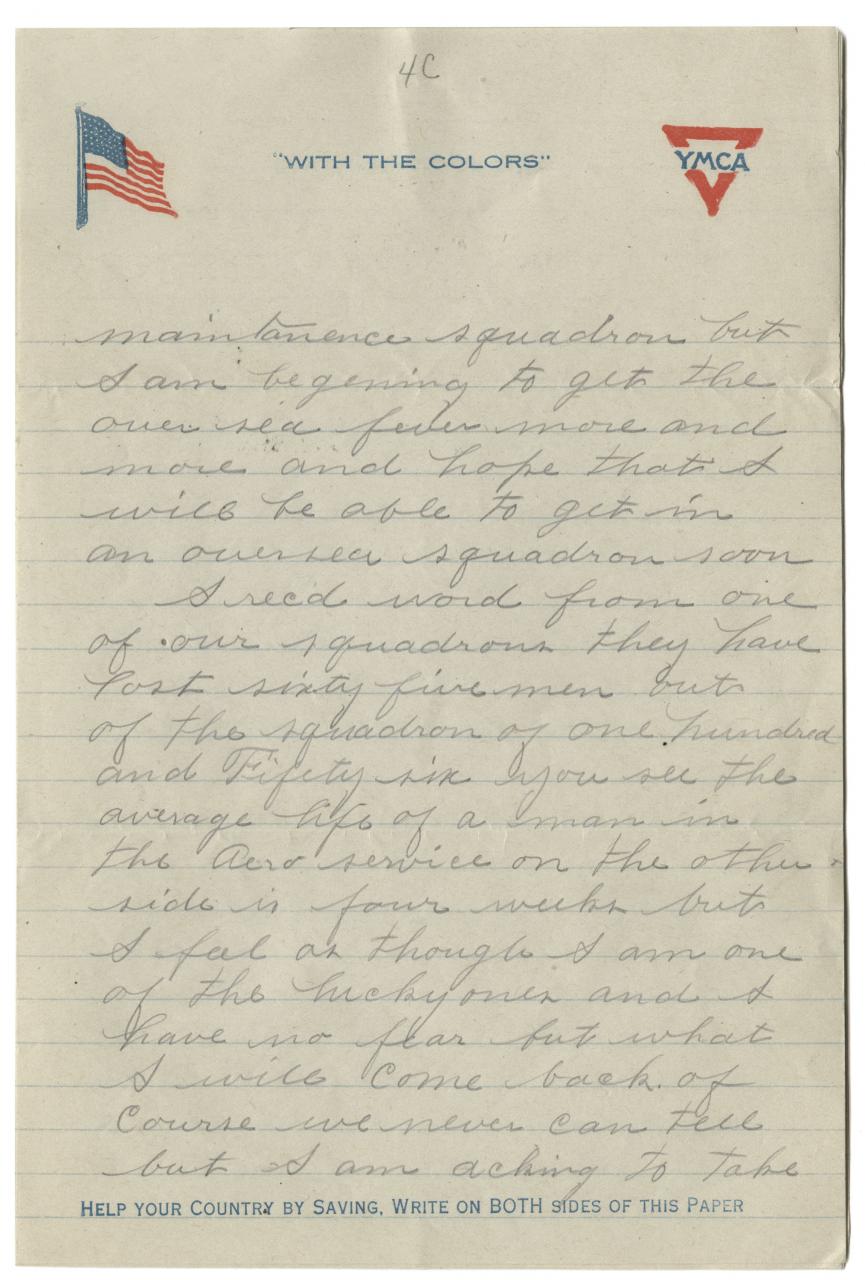 4C
"WITH THE COLORS"
YMCA
maintanence squadron but
I am begening to get the
over sea fever more and
more and hope that I
will be able to get in
an oversea squadron soon
I rec'd word from one
of our squadrons they have
lost sixty five men out
of the squadron of one hundred
and Fifety six you see the
average life of a man in
the Aero service on the other
side is four weeks but
I feel as though I am one
of the lucky ones and I
have no fear but what
I will come back. of
course we never can tell
but I am acking to take
HELP YOUR COUNTRY BY SAVING, WRITE ON BOTH SIDES OF THIS PAPER